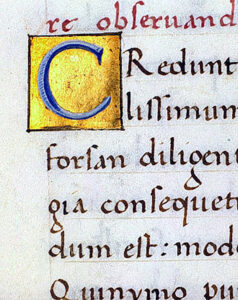 re obseruand
CRedunt
lissimum
forsan diligent
gia consequet
dum est: mode
Quinymo pu